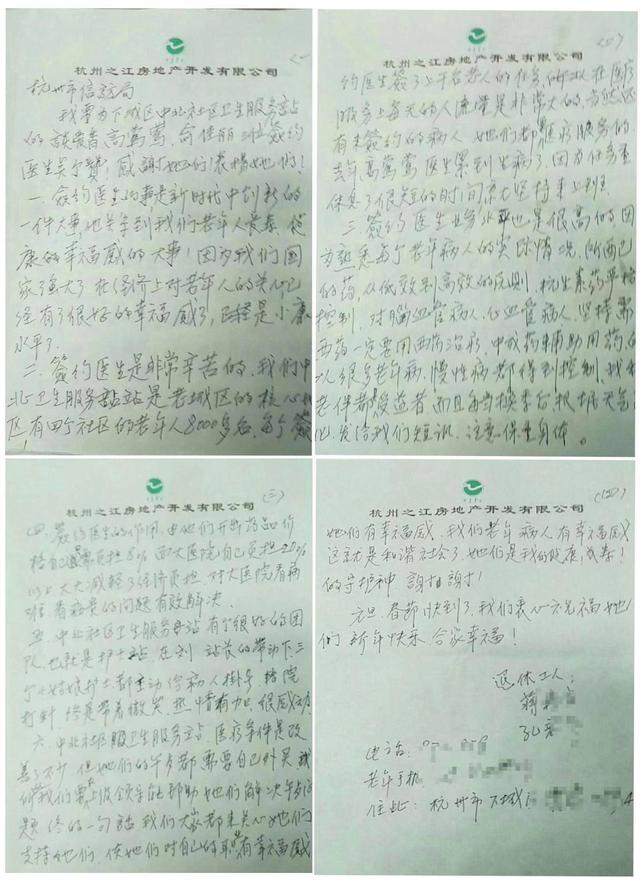 (一)
杭州之江房地产开发有限公司
杭州市信访局
我要为下城区中北社区卫生服务站
的 高莺莺 俞佳丽二位签约
医生点个赞！感谢她们！表扬她们！
一、签约医生的事是新时代中创新的
一件大事。他关乎到我们老年人长寿、健
康的幸福感的大事！因为我们国
家强大了在经济上对老年人的关心已
经有了很好的幸福感了，已经是小康
水平了。
二、签约医生是非常辛苦的，我们中
北卫生服务站是老城区的核心地
区，有四个社区的老年人8000多名，每个签
(二)
杭州之江房地产开发有限公司
约医生签了上千名老人的任务，所以在医疗
服务上每天的人流量是非常大的，当然还
有未签约的病人 她们都是医疗服务的
去年高莺莺医生累到生病了，因为任务重
休息了很短的时间 就坚持来上班
三、签约医生业务水平也是很高的因
为熟悉每个老年病人的实际情况，所配
的药，从低效到高效的原则，抗生素药严格
控制，对脑血管病人、心血管病人，坚持
西药一定要用西药治疗，中成药辅助用药的
以很多老年病，慢性病都得到控制，我和
老伴都是受益者，而且每当换季后根据天气
化，发给我们短讯，注意保重身体。
(三)
杭州之江房地产开发有限公司
四、签约医生的作用，由她们开的药品价
格自己只负担8% 而大医院自己负担20%
以上 大大减轻了经济负担，对大医院看病
难 看病贵的问题有效解决
五、中北社区卫生服务站有个很好的团
队也就是护士站，在刘站长的带动下三
个小姑娘护士都主动给病人掛号、
打针 终是带着微笑 热情有加，很感动
六、中北社区卫生服务站，医疗条件是改
善了不少，但她们的午歺都需要自己外买 我
们要 上级领导能帮助她们解决午歺问
题 终的一句话我们大家都来关心她们
支持她们，使她们对自己的 有幸福感
(四)
杭州之江房地产开发有限公司
她们有幸福感，我们老年病人有幸福感
这就是和谐社会了，她们是我的健康，长寿！
的守护神 谢谢！
元旦、春节快到了，我们衷心祝福她
们 新年快乐 合家幸福！
退休工人：
蒋
孔
电话：
老年手机
住址：杭州市下城